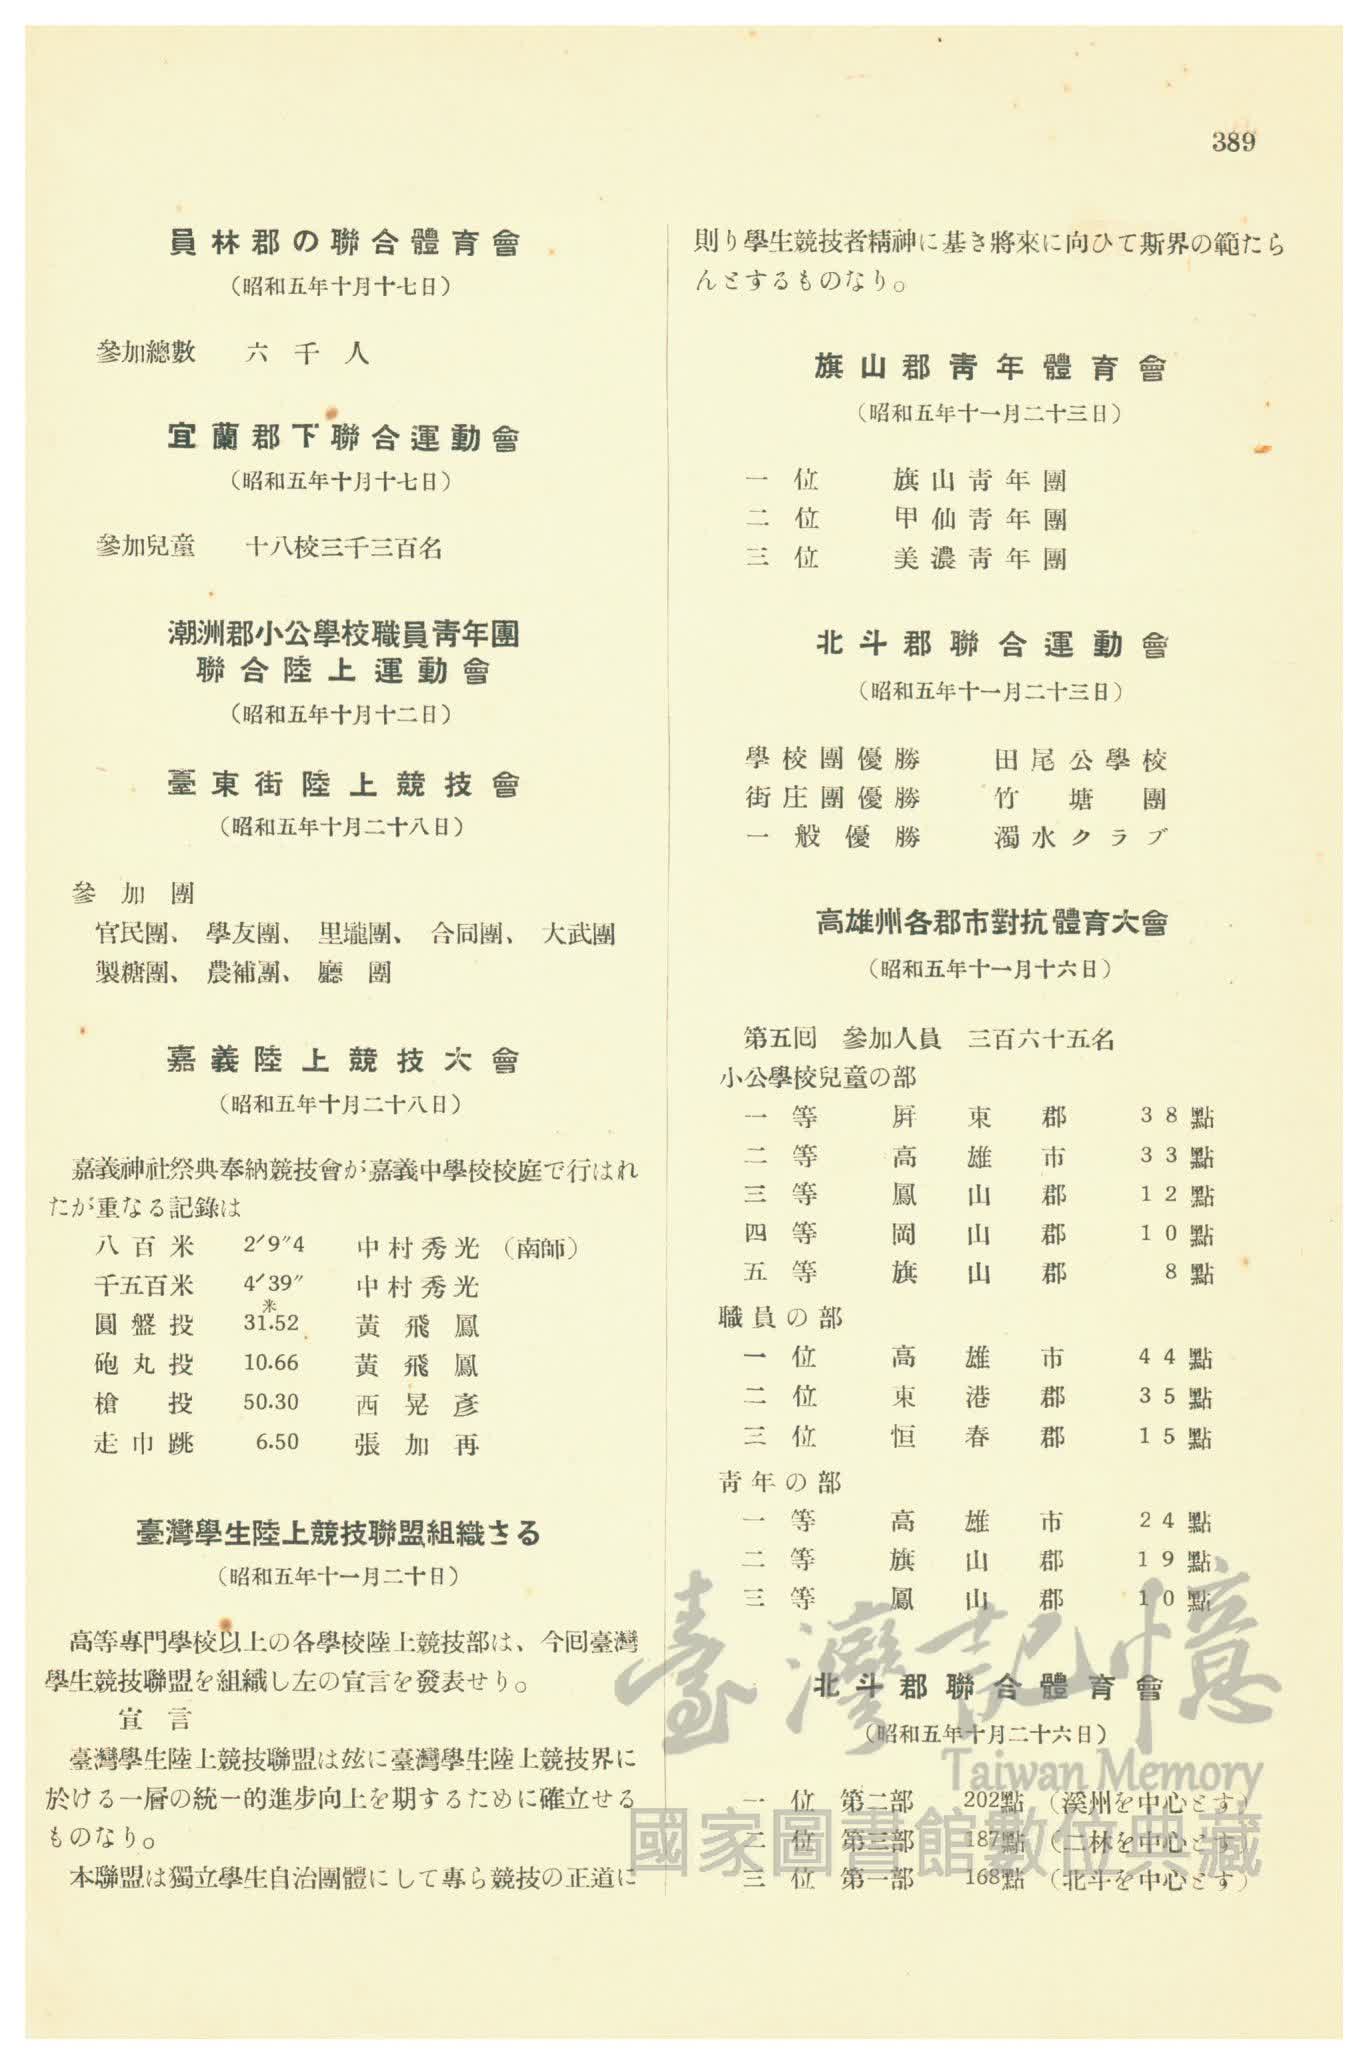 389
員林郡の聯合體育會
(昭和五年十月十七日)
參加總數 六千人
宜蘭郡下聯合運動會
(昭和五年十月十七日)
參加兒童 十八校三千三百名
潮洲郡小公學校職員靑年團
聯合陸上運動會
(昭和五年十月十二日)
臺東街陸上競技會
(昭和五年十月二十八日)
參加團
官民團、學友團、里壠團、合同團、大武團
製糖團、農補團、廳團
嘉義陸上競技大會
(昭和五年十月二十八日)
嘉義神社祭典奉納競技會が嘉義中學校校庭で行はれ
たが重なる記錄は
八百米 2′9″4 中村秀光 (南師)
千五百米 4′39″ 中村秀光
圓盤投 31.52米 黃飛鳳
砲丸投 10.66 黃飛鳳
槍投 50.30 西晃彥
走巾跳 6.50 張加再
臺灣學生陸上競技聯盟組織さる
(昭和五年十一月二十日)
高等專門學校以上の各學校陸上競技部は、今囘臺灣
學生競技聯盟を組織し左の宣言を發表せり。
宣言
臺灣學生陸上競技聯盟は玆に臺灣學生陸上競技界に
於ける一層の統一的進步向上を期するために確立せる
ものなり。
本聯盟は獨立學生自治團體にして專ら競技の正道に
則り學生競技者精神に基き將來に向ひて斯界の範たら
んとするものなり。
旗山郡靑年體育會
(昭和五年十一月二十三日)
一位 旗山靑年團
二位 甲仙靑年團
三位 美濃靑年團
北斗郡聯合運動會
(昭和五年十一月二十三日)
學校團優勝 田尾公學校
街庄團優勝 竹塘團
一般優勝 濁水クラブ
高雄州各郡市對抗體育大會
(昭和五年十一月十六日)
第五囘 參加人員 三百六十五名
小公學校兒童の部
一等 屛東郡 38點
二等 高雄市 33點
三等 鳳山郡 12點
四等 岡山郡 10點
五等 旗山郡 8點
職員の部
一位 高雄市 44點
二位 東港郡 35點
三位 恒春郡 15點
靑年の部
一等 高雄市 24點
二等 旗山郡 19點
三等 鳳山郡 10點
北斗郡聯合體育會
(昭和五年十月二十六日)
一位 第二部 202點 (溪州を中心とす)
二位 第三部 187點 (二林を中心とす)
三位 第一部 168點 (北斗を中心とす)
臺灣記憶
Taiwan Memory
國家圖書館數位典藏